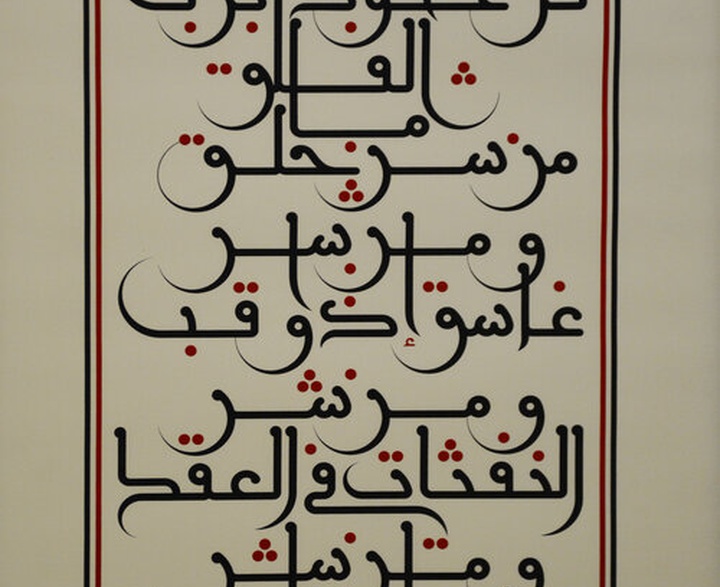 قل اعوذ برب
الفلق
من شر ما خلق
و من شر
غاسق إذا وقب
و من شر
النفثات في العقد
و من شر